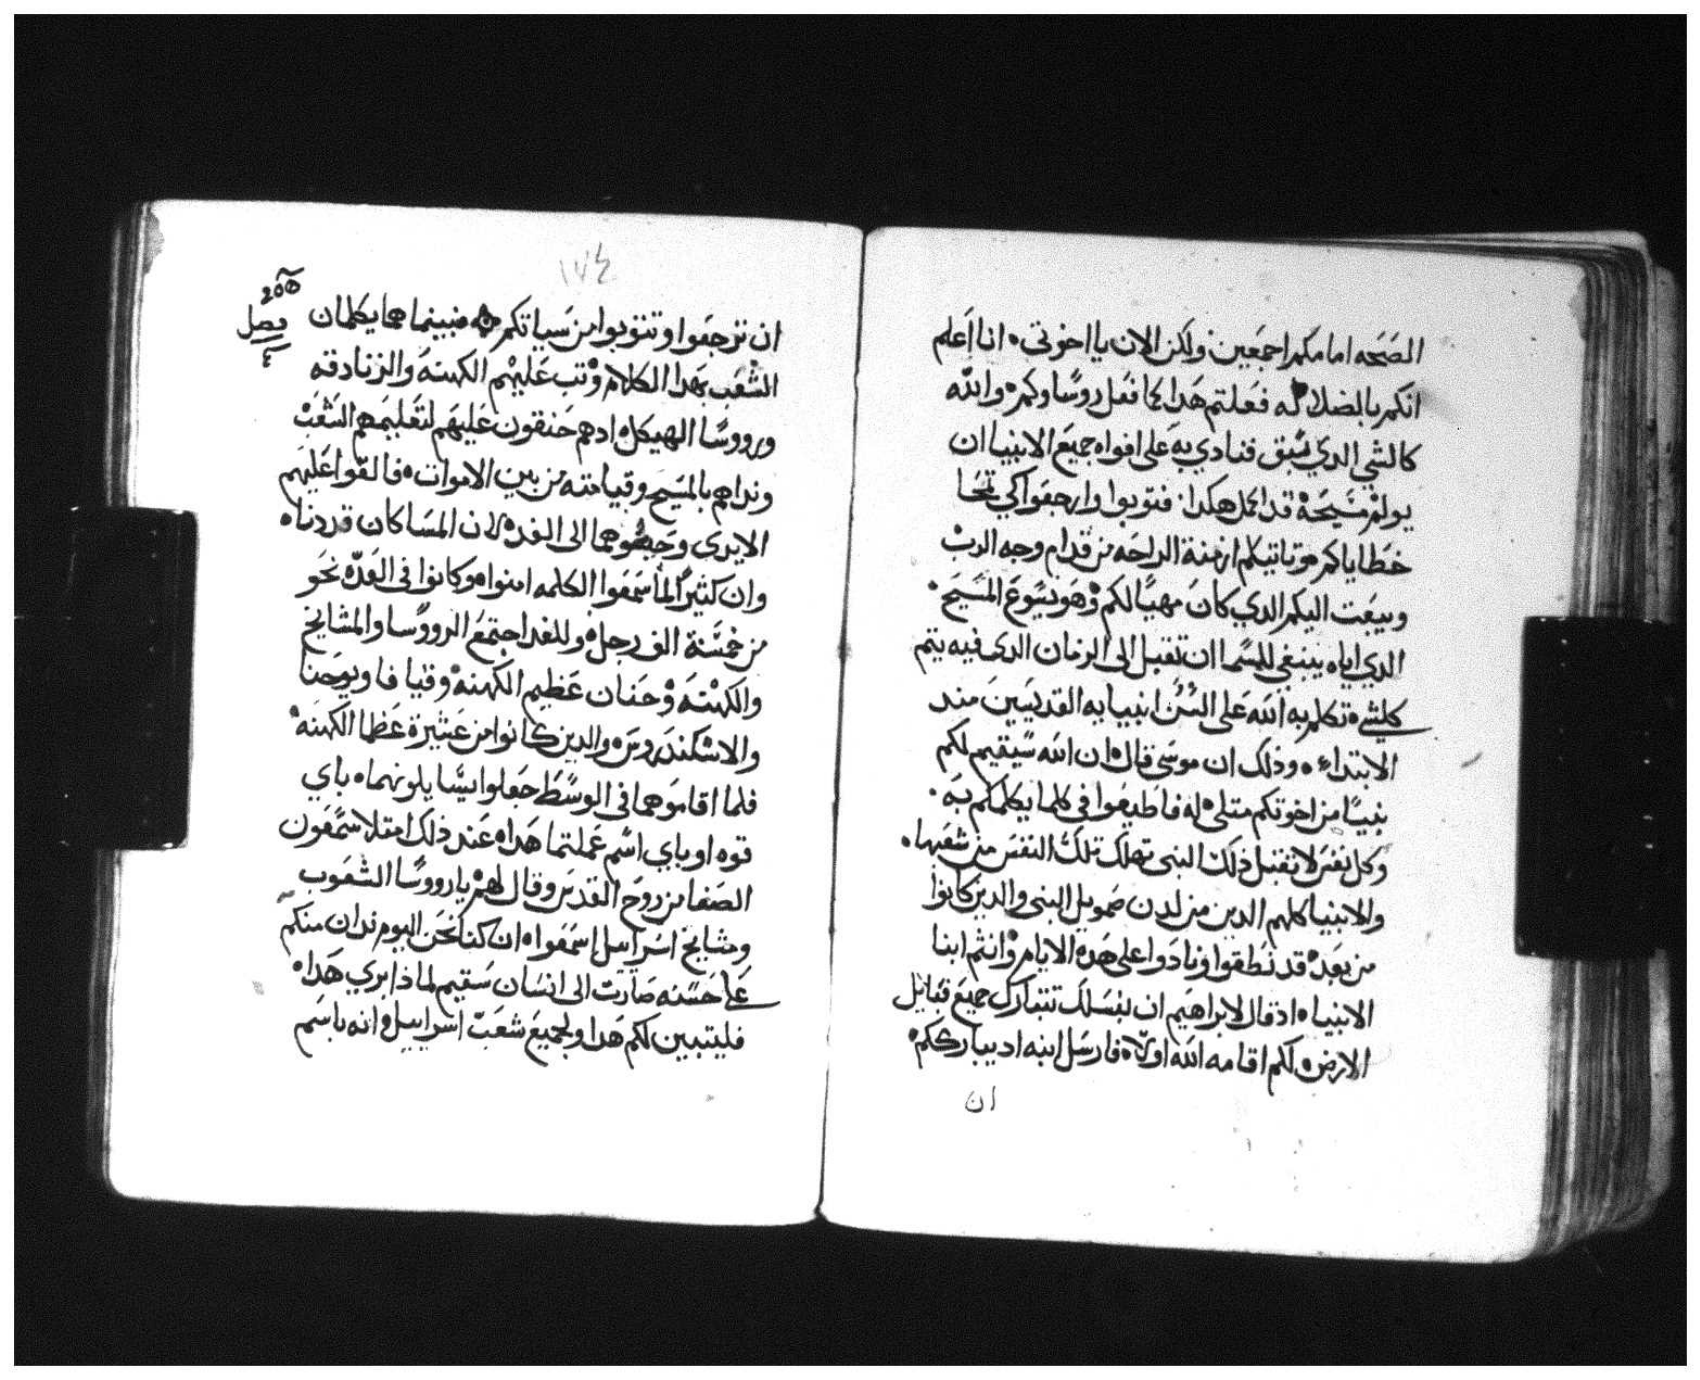 الصحه امامكم اجمعين ولكن الان يا اخوتي ه انا اعلم
انكم بالضلاله فعلتم هدا كما فعل روساوكم ه والله
كالشي الدي سبق فنادي به على افواه جميع الانبيا ان
يولم مسيحه قد اكمل هكدا فتوبوا وارجعوا كي تمحا
خطاياكم ه وتاتيكم ازمنة الراحه من قدام وجه الرب
ويبعت اليكم الدي كان مهيا لكم وهو يسوع المسيح
الدي اياه ينبغي للسما ان تقبل الى الزمان الدى فيه يتم
كلشى تكلم به الله على السن انبيايه القديسين مند
الابتداء ه وذلك ان موسى قال ه ان الله سيقيم لكم
نبيا من اخوتكم متلى ه له فاطيعوا في كلما يكلمكم به
وكل نفس لا تقبل ذلك النبى تهلك تلك النفس من شعبها ه
والانبيا كلهم الدين من لدن صمويل النبى والدين كانوا
من بعده قد نطقوا ونادوا على هده الايام وانتم ابنا
الانبيا ه اد قال لابراهيم ان بنسلك تتبارك جميع قبايل
الارض ه لكم اقامه الله اولا ه فارسل ابنه اد يبارككم ه
ان
١٧٤
فصل
ان ترجعوا وتتوبوا من سياتكم ه فبينما هما يكلمان
الشعب بهدا الكلام وتب عليهم الكهنه والزنادقه
ورووسا الهيكل ه ادهم حنقون عليهم لتعليمهم الشعب
ونداهم بالمسيح وقيامته من بين الاموات ه فالقوا عليهم
الايدى وحبسوهما الى الغد ه لان المسا كان قد دنا ه
وان كثيرا لما سمعوا الكلمه امنوا ه وكانوا فى العده نحو
من خمسة الف رجل ه وللغد اجتمع الرووسا والمشايخ
والكهنه وحنان عظيم الكهنه وقيافا ويوحنا
والاسكندروس ه والدين كانوا من عشيرة عظما الكهنه
فلما اقاموهما فى الوسط جعلوا يسايلونهما ه باي
قوه او باي اسم عملتما هدا ه عند ذلك امتلا سمعون
الصفا من روح القدس وقال لهم يا رووسا الشعوب
ومشايخ اسراييل اسمعوا ه ان كنا نحن اليوم ندان منكم
على حسنه صارت الى انسان سقيم لماذا ابري هدا ه
فليتبين لكم هدا ولجميع شعب اسراييل ه انه باسم